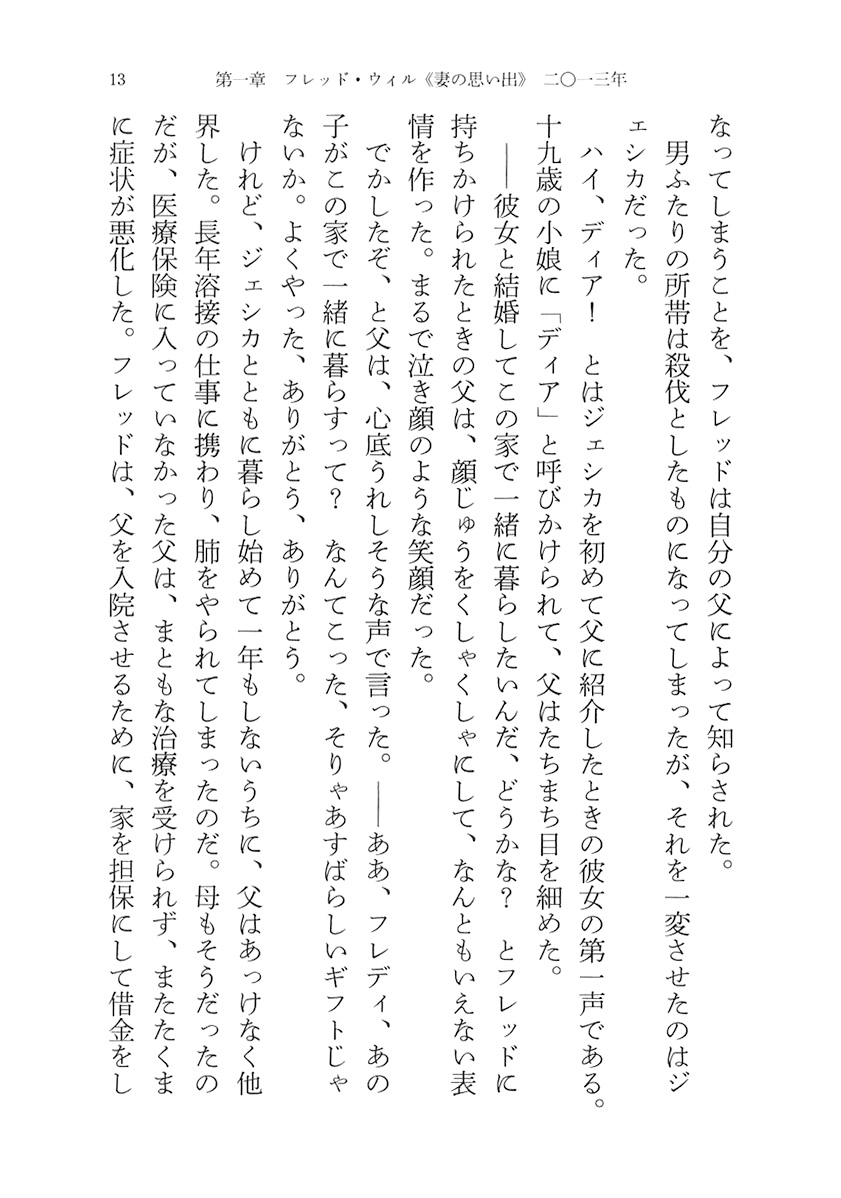 13 第一章 フレッド・ウィル《妻の思い出》 二〇一三年
なってしまうことを、フレッドは自分の父によって知らされた。
　男ふたりの所帯は殺伐としたものになってしまったが、それを一変させたのはジ
ェシカだった。
　ハイ、ディア！　とはジェシカを初めて父に紹介したときの彼女の第一声である。
十九歳の小娘に「ディア」と呼びかけられて、父はたちまち目を細めた。
　――彼女と結婚してこの家で一緒に暮らしたいんだ、どうかな？　とフレッドに
持ちかけられたときの父は、顔じゅうをくしゃくしゃにして、なんともいえない表
情を作った。まるで泣き顔のような笑顔だった。
　でかしたぞ、と父は、心底うれしそうな声で言った。――ああ、フレディ、あの
子がこの家で一緒に暮らすって？　なんてこった、そりゃあすばらしいギフトじゃ
ないか。よくやった、ありがとう、ありがとう。
　けれど、ジェシカとともに暮らし始めて一年もしないうちに、父はあっけなく他
界した。長年溶接の仕事に携わり、肺をやられてしまったのだ。母もそうだったの
だが、医療保険に入っていなかった父は、まともな治療を受けられず、またたくま
に症状が悪化した。フレッドは、父を入院させるために、家を担保にして借金をし